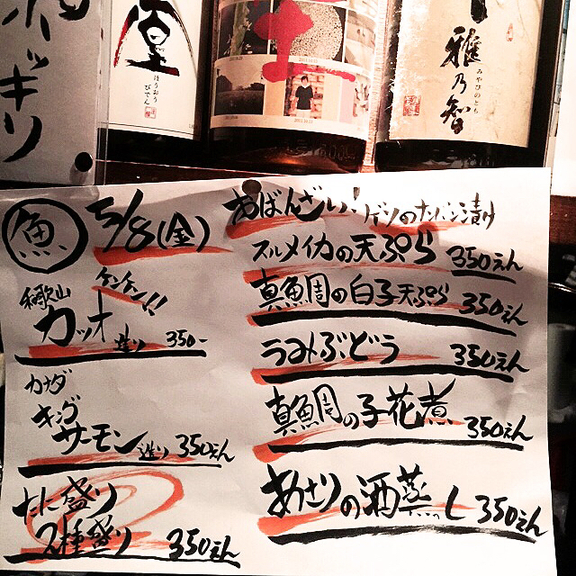 ホッキリ
雅乃智
みやびのとも
魚 5/8(金)
ケンケン!!
和歌山
カツオ 造り 350-
カナダ
キングサーモン 造り 350えん
2種盛り 350えん
おばんざい! ゲソのナンバン漬け
スルメイカの天ぷら 350えん
真魚周の白子天ぷら 350えん
うみぶどう 350えん
真魚周の子花煮 350えん
あさりの酒蒸し 350えん